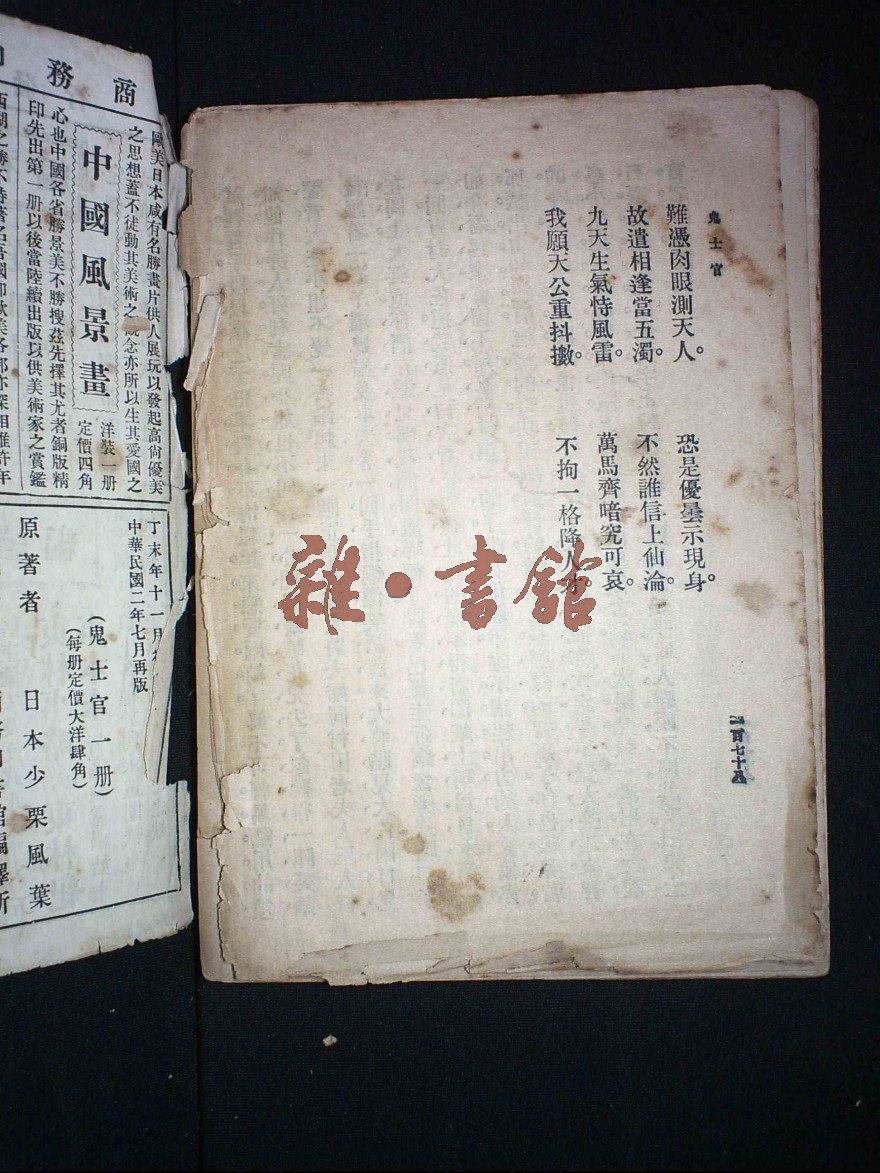 鬼士官
難憑肉眼測天人。 恐是優曇示現身。
故遣相逢當五濁。 不然誰信上仙淪。
九天生氣恃風雷。 萬馬齊喑究可哀。
我願天公重抖擻。 不拘一格降人才。
二百七十八
雜·書館
商務
歐美日本咸有名勝畫片供人展玩以發起高尙優美
之思想蓋不徒動其美術之觀念亦所以生其愛國之
心也中國各省勝景美不勝搜茲先擇其尤者銅版精
印先出第一册以後當陸續出版以供美術家之賞鑑
中國風景畫
洋裝一册
定價四角
丁未年十一月
中華民國二年七月再版
(鬼士官一册)
(每册定價大洋肆角)
原著者 日本少栗風葉